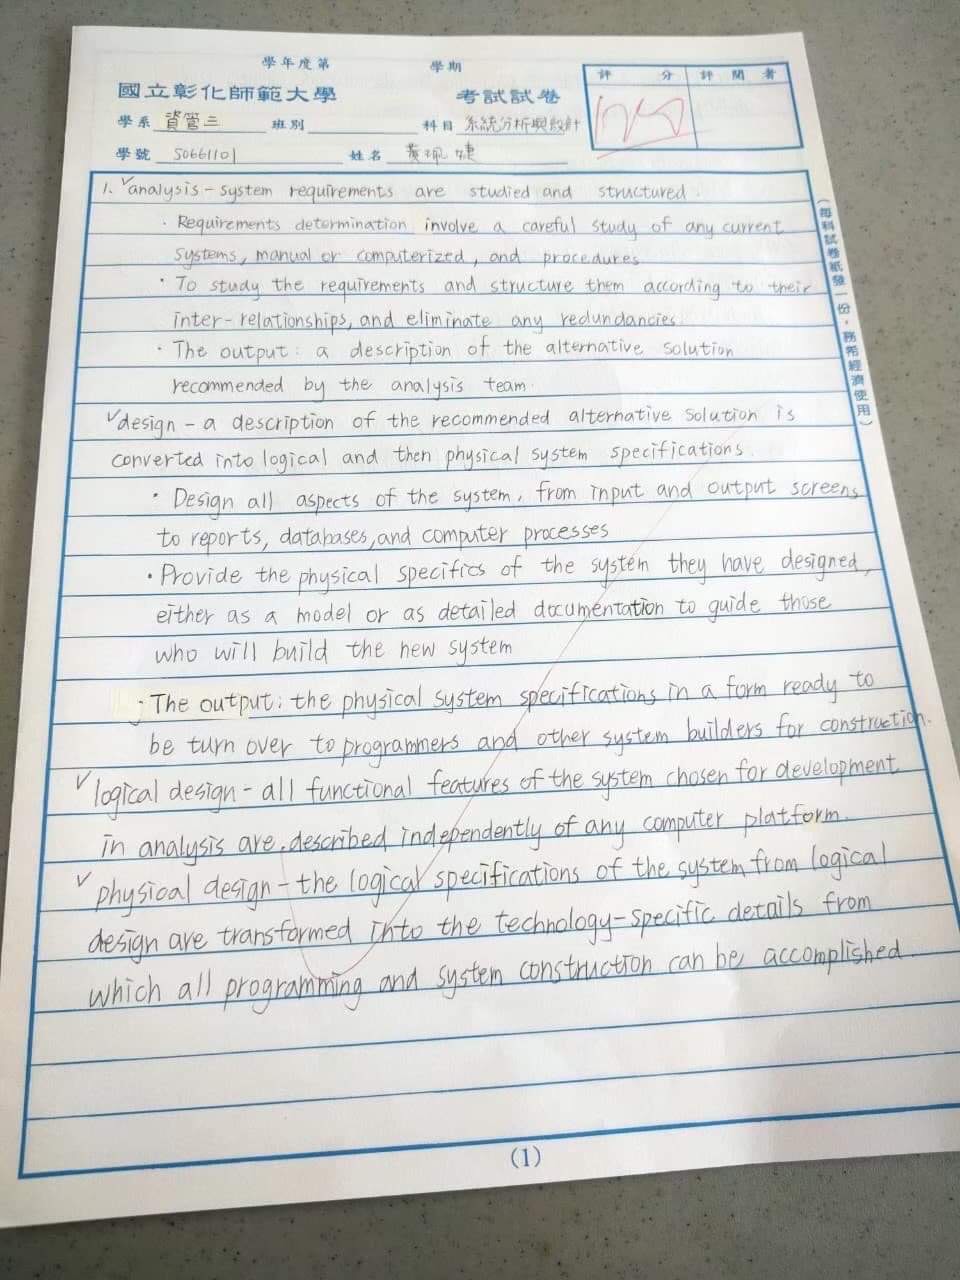 學年度第 學期
國立彰化師範大學 考試試卷
評分 評閱者
學系 資管三 班別 科目 系統分析與設計
學號 S0661101 姓名 黃珮婕
(每科試卷紙發一份,務希經濟使用)
1. ✓analysis - system requirements are studied and structured.
· Requirements determination involve a careful study of any current
systems, manual or computerized, and procedures
· To study the requirements and structure them according to their
inter-relationships, and eliminate any redundancies.
· The output: a description of the alternative solution
recommended by the analysis team.
✓design - a description of the recommended alternative solution is
converted into logical and then physical system specifications.
· Design all aspects of the system, from input and output screens
to reports, databases, and computer processes
· Provide the physical specifics of the system they have designed,
either as a model or as detailed documentation to guide those
who will build the new system
· The output: the physical system specifications in a form ready to
be turn over to programmers and other system builders for construction.
✓logical design - all functional features of the system chosen for development
in analysis are described independently of any computer platform.
✓physical design - the logical specifications of the system from logical
design are transformed into the technology-specific details from
which all programming and system construction can be accomplished.
(1)